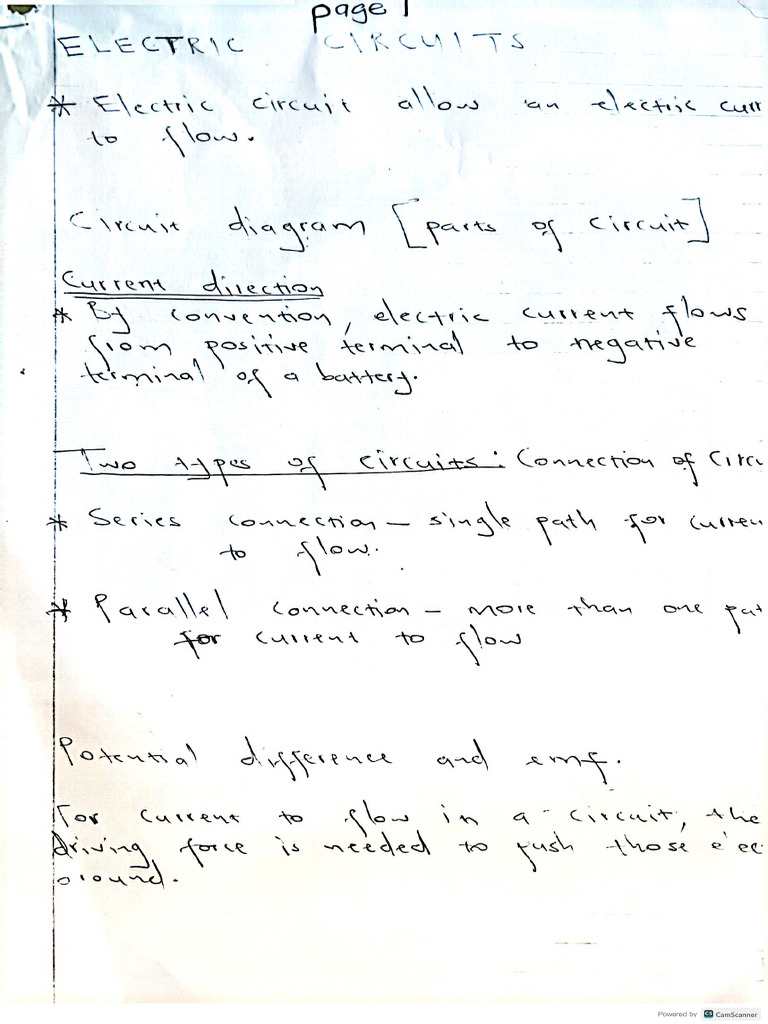 page 1
ELECTRIC CIRCUITS
* Electric circuit allow an electric curr
to flow.
Circuit diagram [parts of circuit]
Current direction
* By convention, electric current flows
from positive terminal to negative
terminal of a battery.
Two types of circuits: Connection of Circu
* Series connection – single path for curren
to flow.
* Parallel connection – more than one pat
for current to flow
Potential difference and emf.
For current to flow in a circuit, the
driving force is needed to push those e'ec
around.
Powered by CS CamScanner